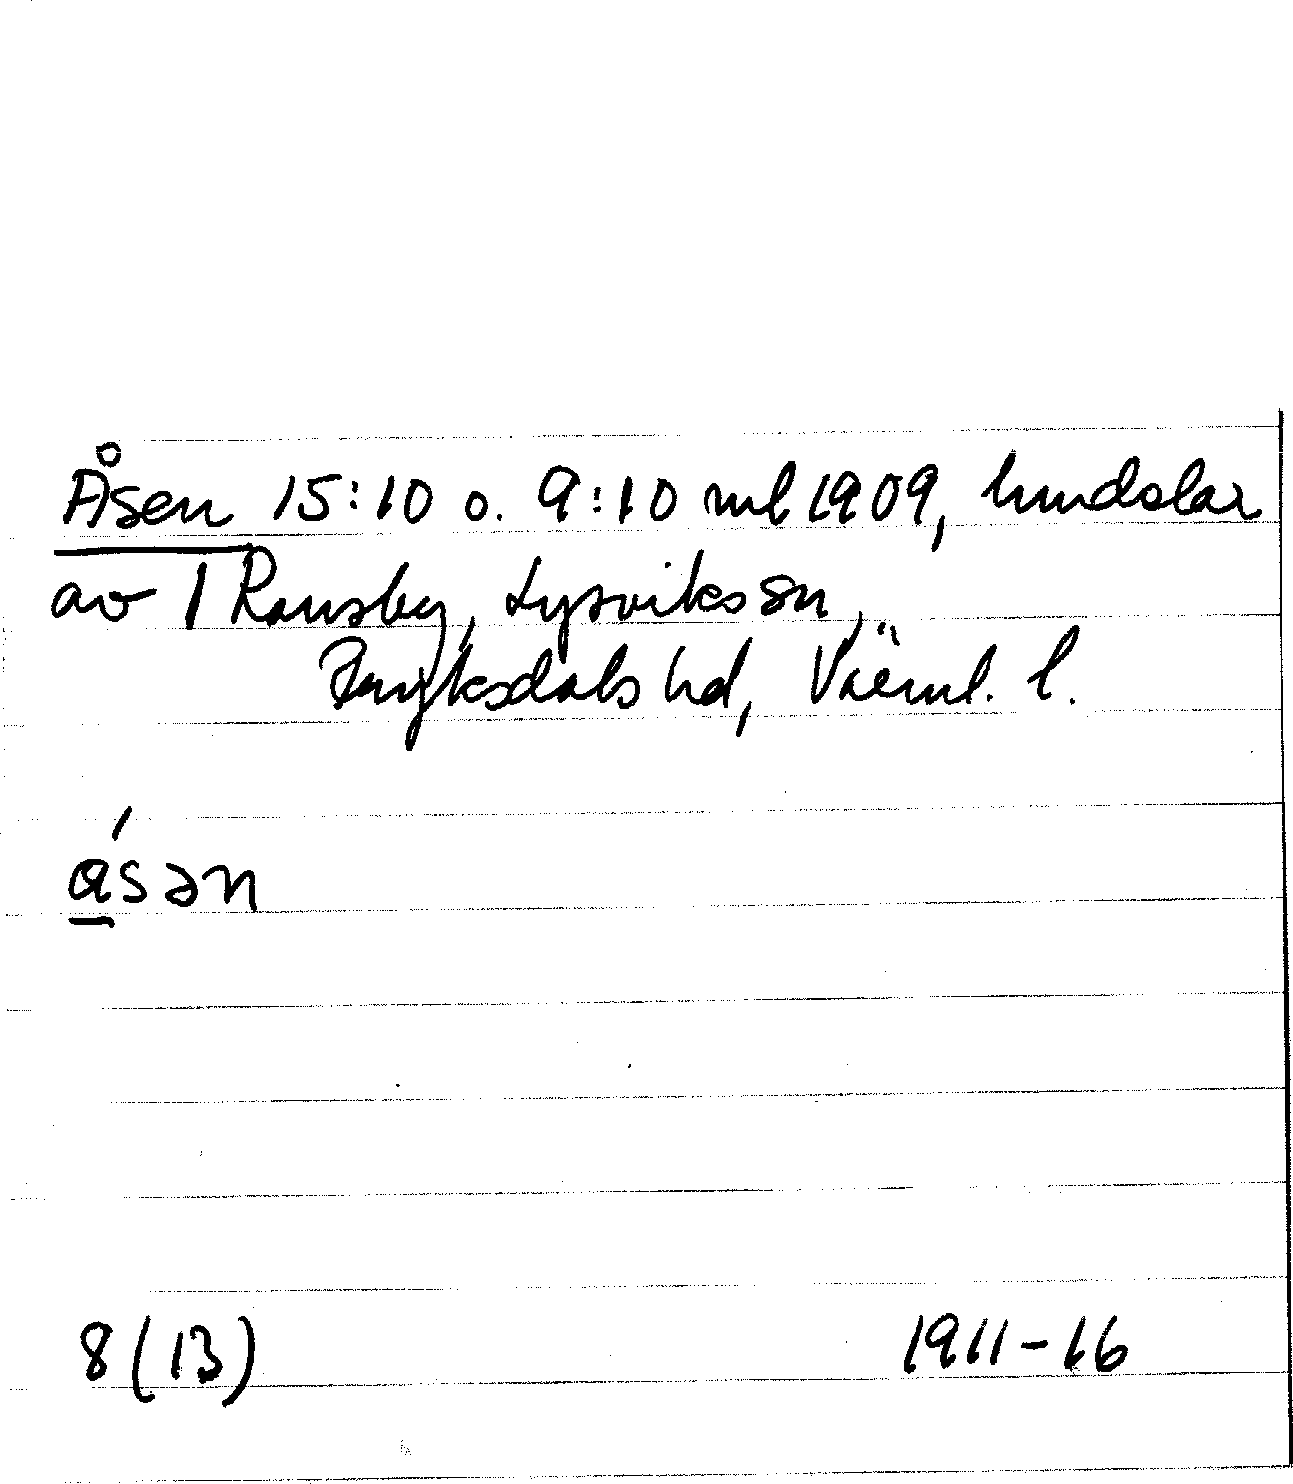 Åsen 15:10 o. 9:10 ml 1909, hmdslar
av 1 Ransby, Lysviks sn,
Fryksdals hd, Värml. l.
ásən
8 (13) 1911-16